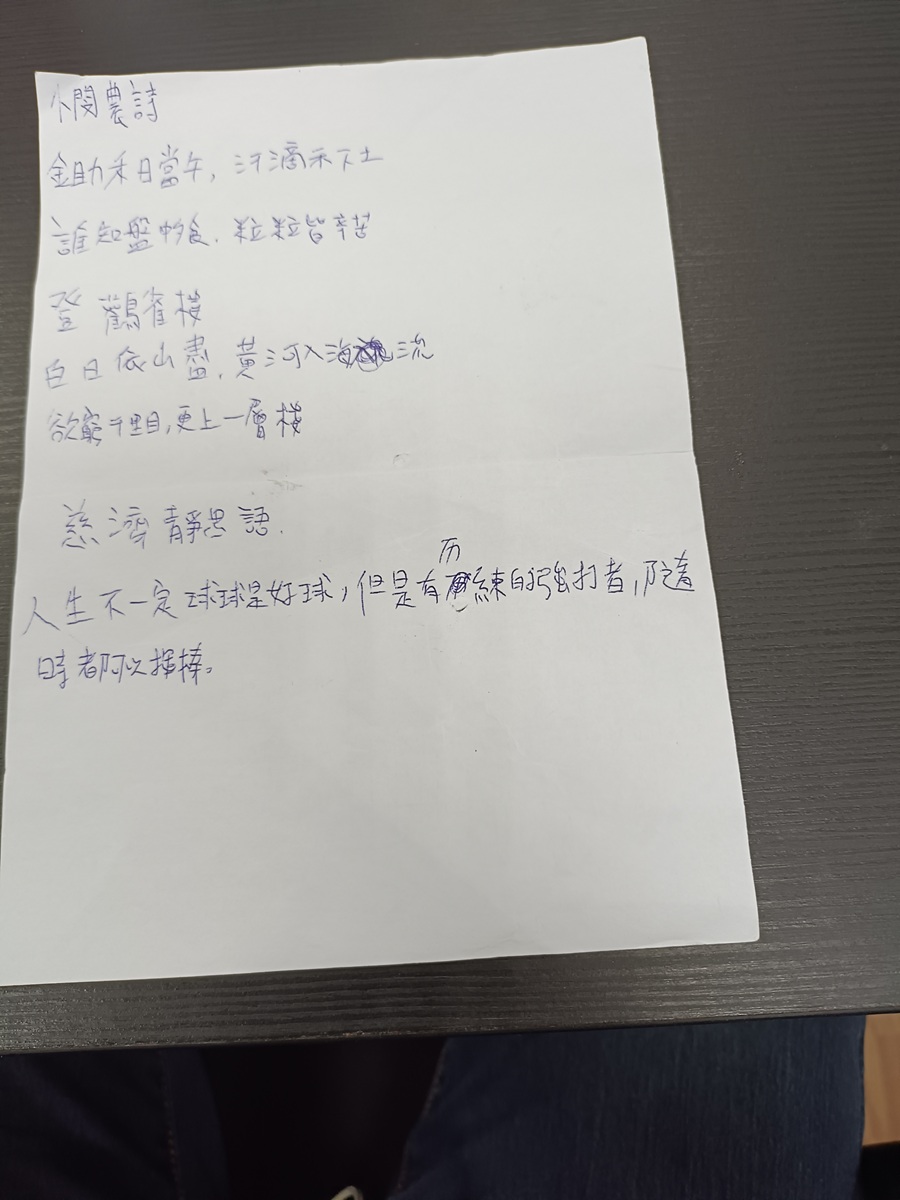 憫農詩
鋤禾日當午，汗滴禾下土
誰知盤中飧．粒粒皆辛苦
登鸛雀樓
白日依山盡．黃河入海流
欲窮千里目，更上一層樓
慈濟靜思語．
人生不一定球球是好球，但是有历練的強打者，隨著
時都可以揮棒。